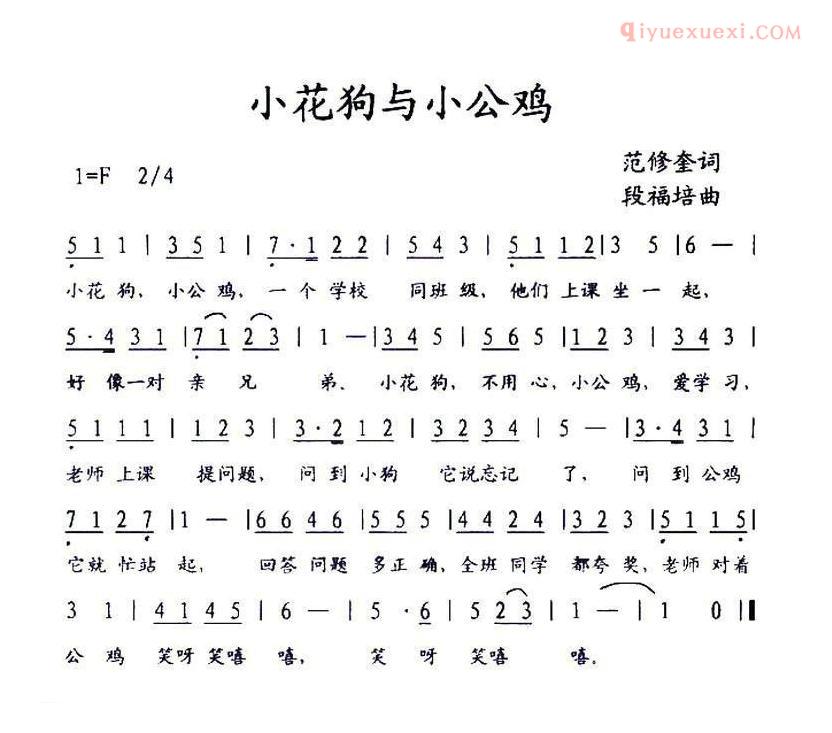 qiyuexuexi.COM
小花狗与小公鸡
范修奎词
1=F 2/4
段福培曲
5 1 1 | 3 5 1 | 7·1 2 2 | 5 4 3 | 5 1 1 2 | 3 5 | 6 — |
小花 狗，小公 鸡，一个 学校 同班 级，他们 上课 坐 一 起，
5·4 3 1 | 7 1 2 3 | 1 — | 3 4 5 | 5 6 5 | 1 2 3 | 3 4 3 |
好 像一对 亲 兄 弟、小花 狗，不用 心，小公 鸡，爱学 习，
5 1 1 1 | 1 2 3 | 3·2 1 2 | 3 2 3 4 | 5 — | 3·4 3 1 |
老师 上课 提问题，问 到 小狗 它说忘记 了，问 到 公鸡
7 1 2 7 | 1 — | 6 6 4 6 | 5 5 5 | 4 4 2 4 | 3 2 3 | 5 1 1 5 |
它就 忙站 起，回答 问题 多正 确，全班 同学 都夸 奖，老师 对着
3 1 | 4 1 4 5 | 6 — | 5 · 6 | 5 2 3 | 1 — | 1 0 ‖
公 鸡 笑呀 笑嘻 嘻，笑 呀 笑嘻 嘻。